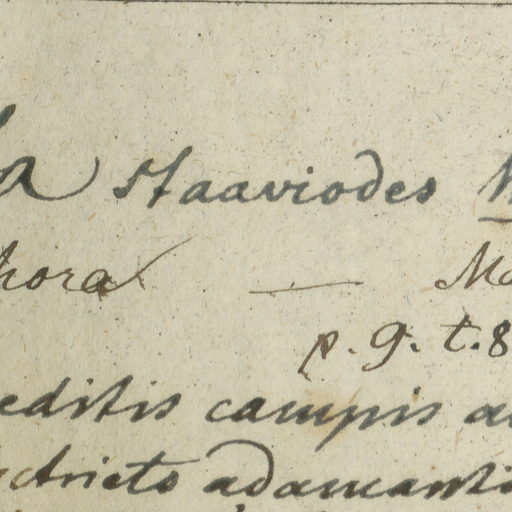 a staaviodes
hora — Ma
p. 9. t. 8
editis campis a
stricto adamanti